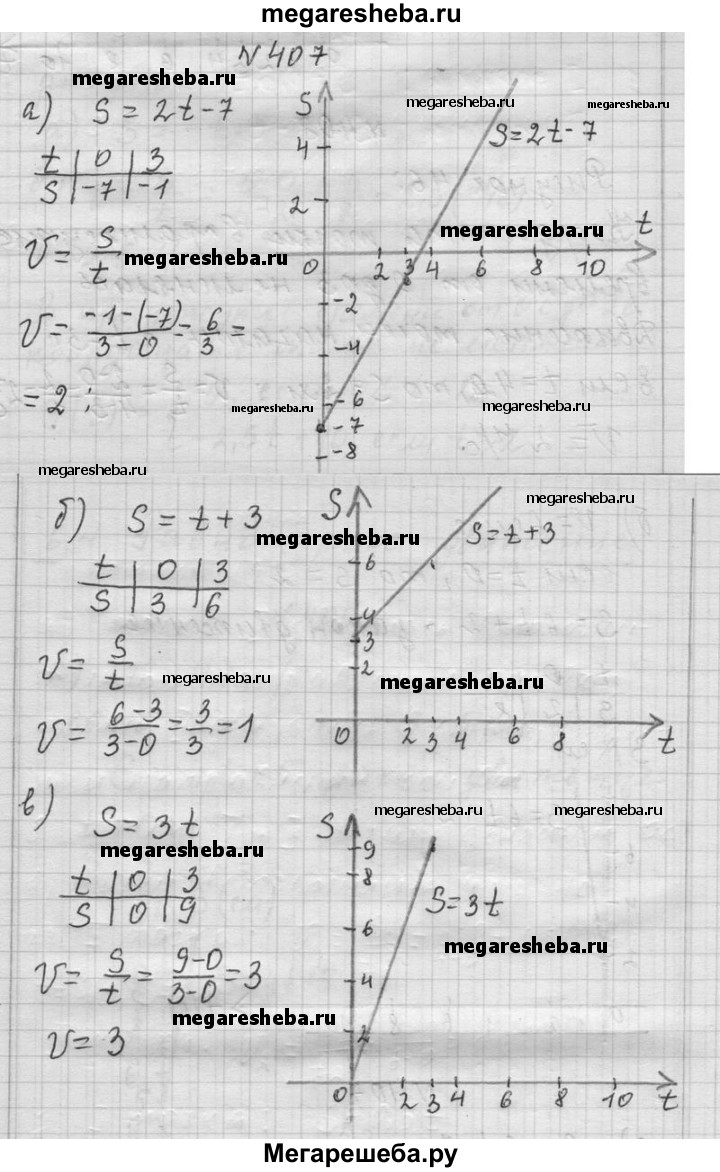 megaresheba.ru
N 407
megaresheba.ru
а) S = 2t - 7
t | 0 | 3
S | -7 | -1
V = S/t
megaresheba.ru
V = -1-(-7)/3-0 - 6/3 =
= 2 ;
megaresheba.ru
S
megaresheba.ru
megaresheba.ru
S=2t-7
4
2
megaresheba.ru
t
0 2 3 4 6 8 10
-2
-4
-6
-7
-8
megaresheba.ru
megaresheba.ru
б) S = t + 3
megaresheba.ru
t | 0 | 3
S | 3 | 6
V = S/t
megaresheba.ru
V = 6-3/3-0 = 3/3 = 1
S
megaresheba.ru
S=t+3
6
4
3
2
megaresheba.ru
0 2 3 4 6 8 t
в) S = 3t
megaresheba.ru
t | 0 | 3
S | 0 | 9
V = S/t = 9-0/3-0 = 3
megaresheba.ru
V = 3
megaresheba.ru
megaresheba.ru
S
9
8
S=3t
6
megaresheba.ru
4
2
0 2 3 4 6 8 10 t
Мегарешеба.ру